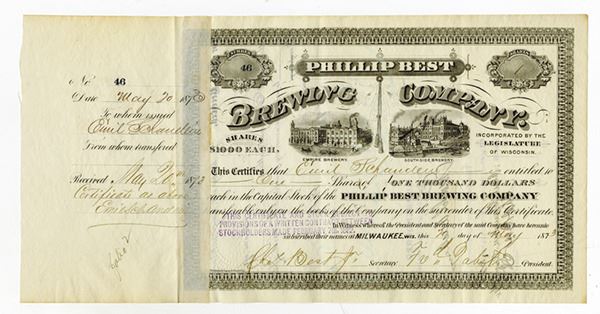 No 46
Date May 20 1873
To whom issued
Emil Schandein
From whom transferred
Received, May 20th 1873
Certificate as above
Emil Schandein
NUMBER
46
SHARES
PHILLIP BEST
BREWING COMPANY.
SHARES
$1000 EACH.
EMPIRE BREWERY.
SOUTH SIDE BREWERY.
INCORPORATED BY THE
LEGISLATURE
OF WISCONSIN.
This Certifies that Emil Schandein is entitled to
One Shares of ONE THOUSAND DOLLARS
each in the Capital Stock of the PHILLIP BEST BREWING COMPANY
transferable only on the books of the Company on the surrender of this Certificate
THIS CERTIFICATE
PROVISIONS OF A WRITTEN CONTRACT BETWEEN
STOCKHOLDERS MADE FEBRUARY
In Witness whereof, the President and Secretary of the said Company have hereunto
subscribed their names at MILWAUKEE, WIS. this day of May 187
Chas Best Jr. Secretary Fr. Pabst President.